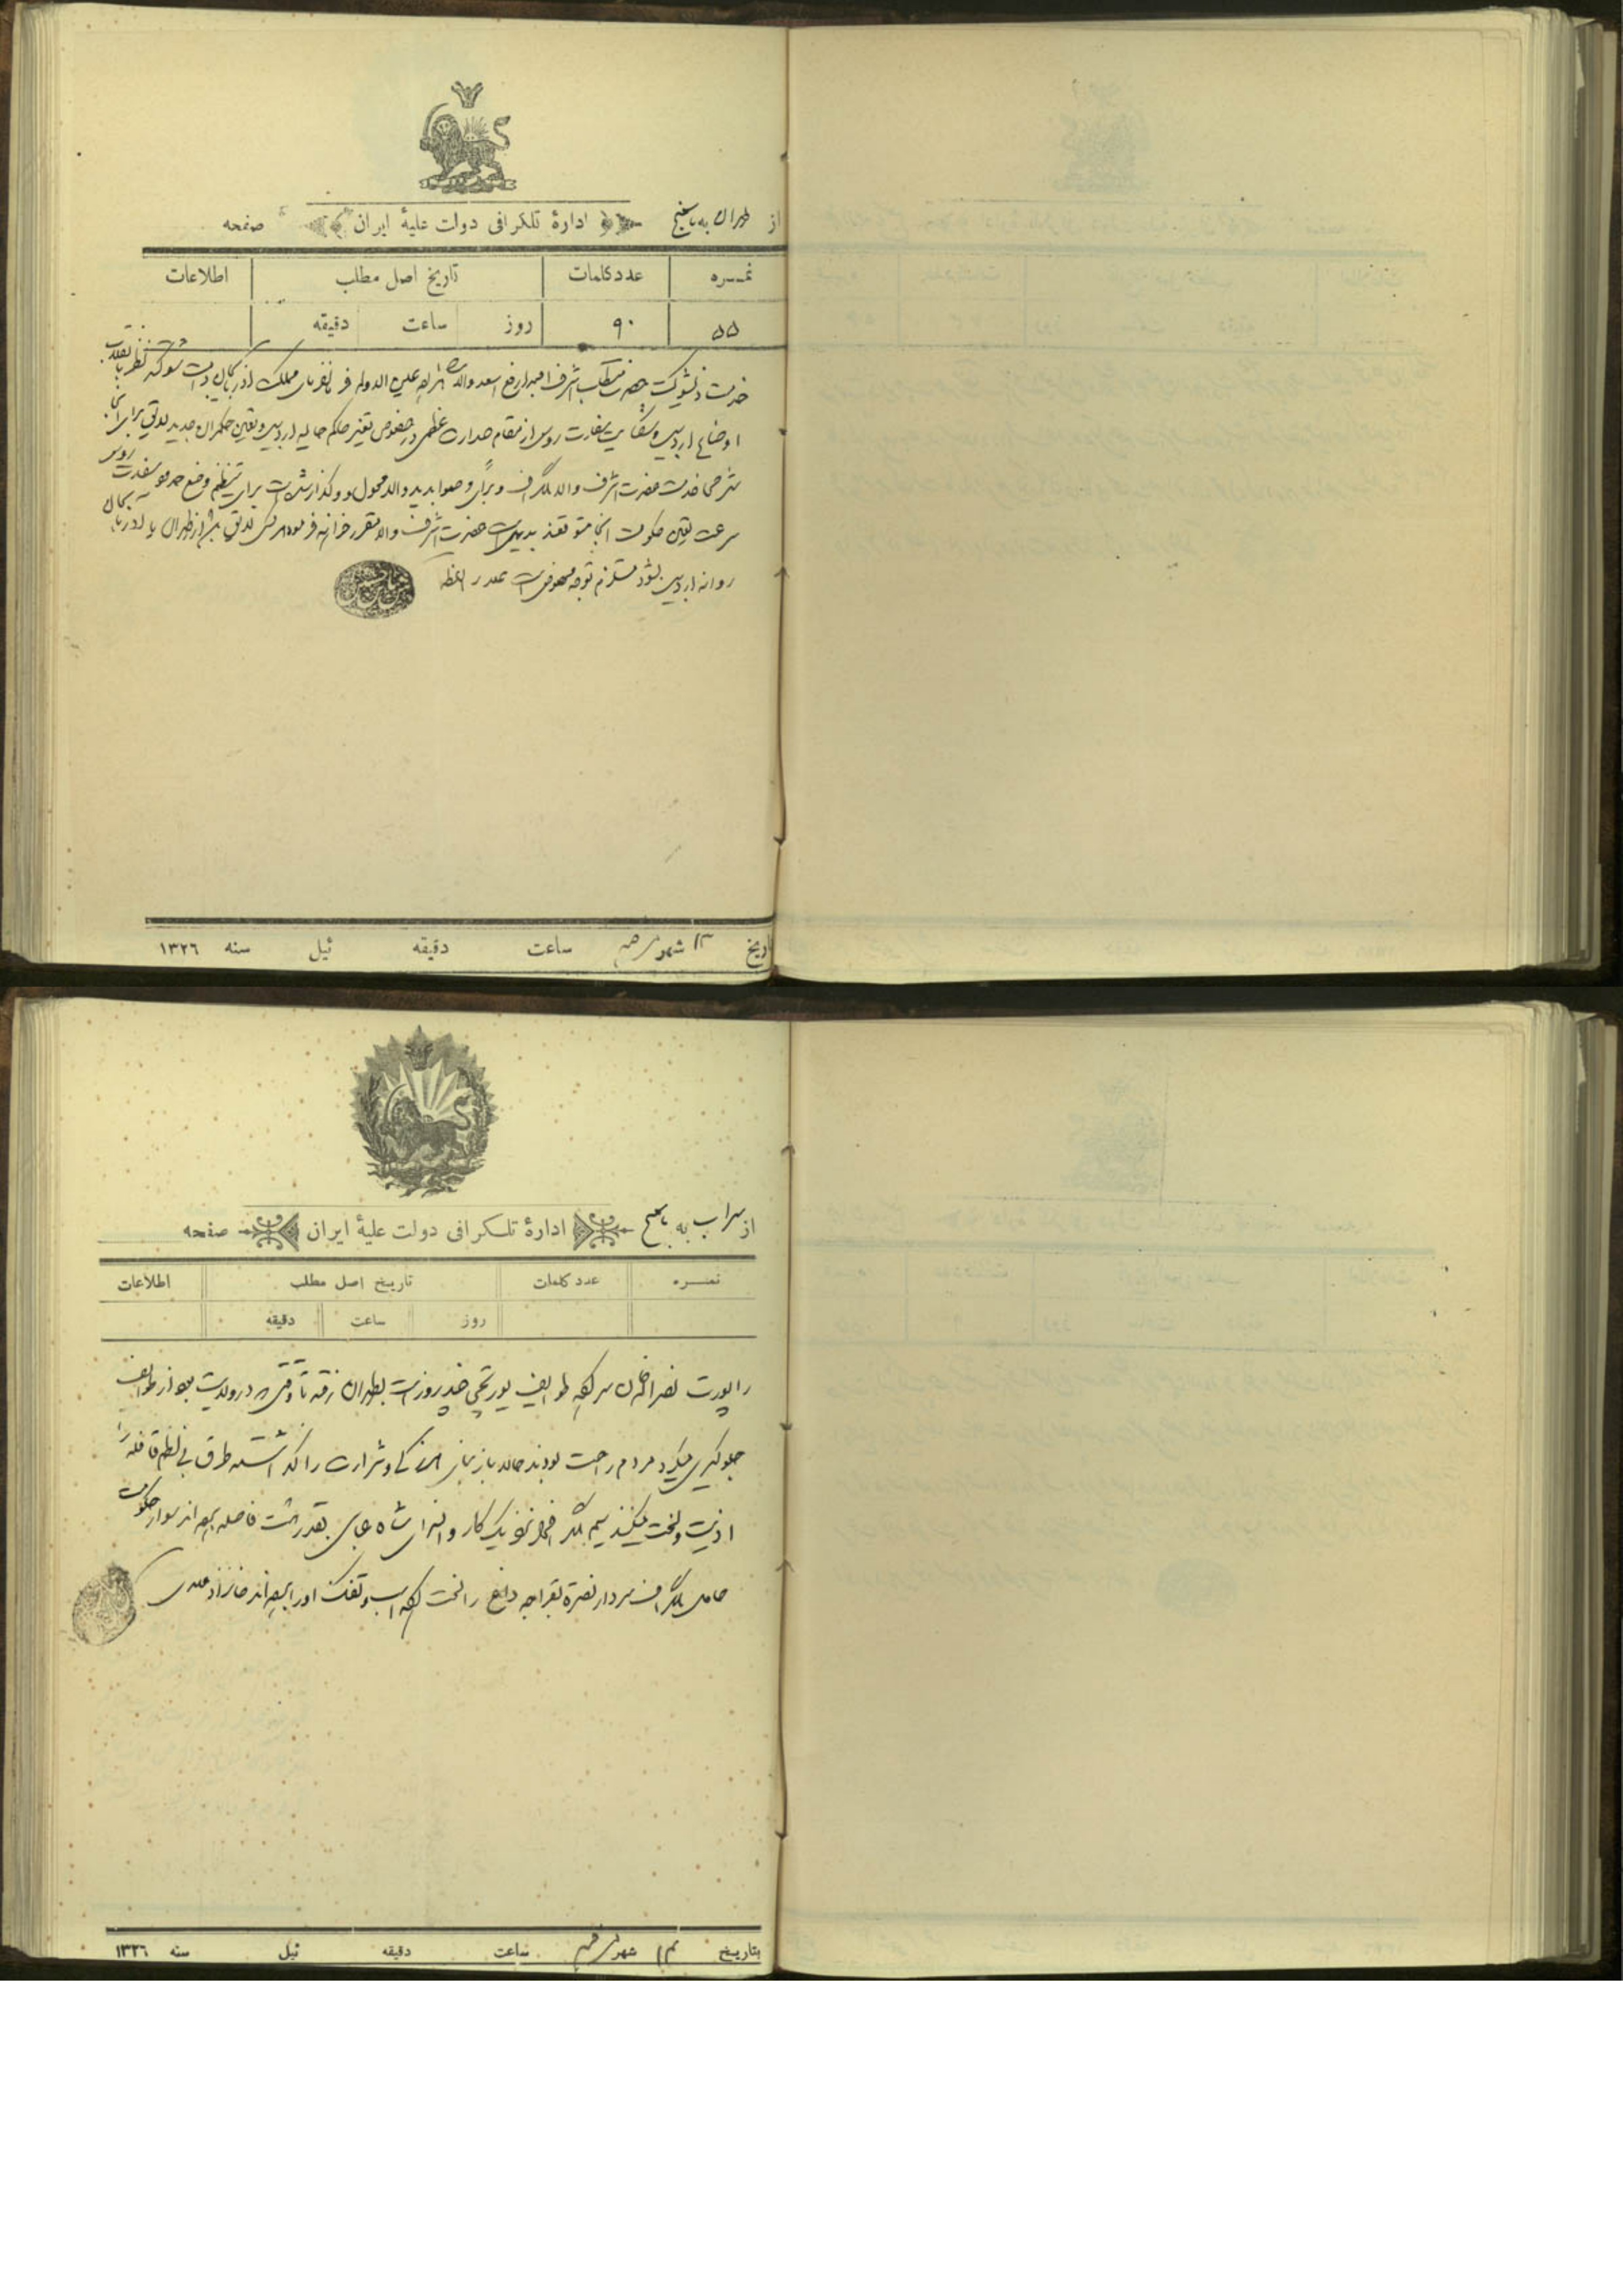 از طهران به باسمنج ادارهٔ تلگرافی دولت علیهٔ ایران صفحه
نمسره عدد کلمات تاریخ اصل مطلب اطلاعات
۵۵ ۹۰ روز ساعت دقیقه
خدمت ذیشوکت حضرت مستطاب اشرف امجد ارفع اسعد والا شاهزاده عین الدوله فرمانفرمای مملکت آذربایجان دامت شوکته نظر بانقلاب
اوضاع اردبیل و شکایت سفارت روس از مقام صدارت عظمی در خصوص تغییر حاکم حالیه اردبیل و تعیین حکمران جدید لایق برای آنجا
شرحی خدمت حضرت اشرف والا تلگراف و برأی و صوابدید والا محول و واگذار شده است برای تنظیم وضع سفارت روس
سرعت تعیین حکومت آنجا متوقعند بدیهی است حضرت اشرف والا مقرر خواهند فرمود هر کس لایق باشد از طهران یا آذربایجان
روانه اردبیل بشود مستلزم توجه مخصوص است
تاریخ ۱۳ شهر ساعت دقیقه ئیل سنه ۱۳۲۶
از سراب به باسمنج ادارهٔ تلسکرافی دولت علیهٔ ایران صفحه
نمسره عدد کلمات تاریخ اصل مطلب اطلاعات
روز ساعت دقیقه
راپورت نصراله خان سرکرده طوایف یورتچی چند روز است بطهران رفته تا وقتی در ولایت بود از طوایف
جلوگیری میکرد مردم راحت بودند حالا باز بنای و شرارت را گذاشته طرق بی نظم قافله را
اذیت و لخت میکنند سیم تلگراف نزدیک کاروانسرای شاه عباسی بقدر هشت فاصله برده اند سوار حکومت
حامل تلگراف سردار نصرة بقراجه داغ را لخت کرده اسب و تفنگ او را برده اند خانزاد
بتاریخ شهر ساعت دقیقه ئیل سنه ۱۳۲۶